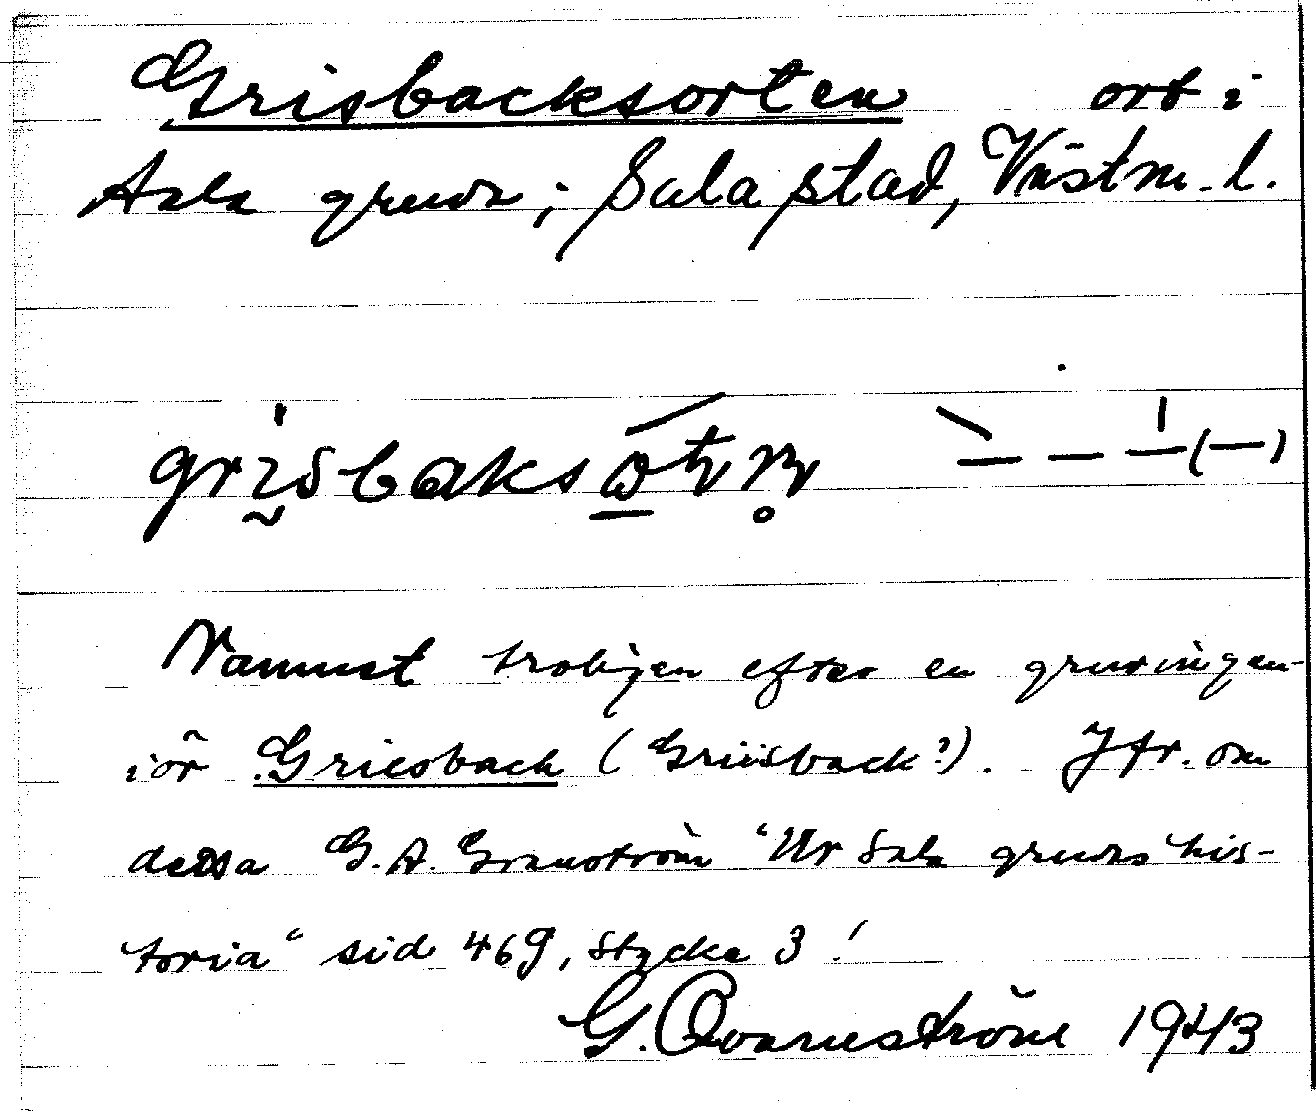 Grisbacksorten ort i
Sala gruva; Sala stad, Västm. l.
Namnet troligen efter en gruvingen-
iör Griesbach (Griisback?). Jfr. om
dessa G. A. Granström "Ur Sala gruvas his-
toria" sid 469, stycke 3!
G. Qvarnström 1943